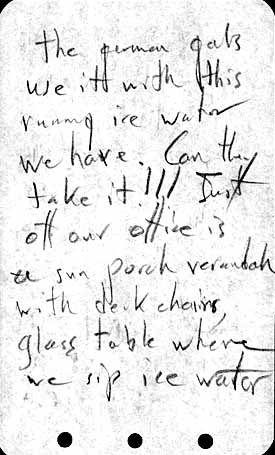 the german gals
we itt with this
runnng ice water
we have. Can they
take it!!! Just
off our office is
a sun porch verandah
with deck chairs,
glass table where
we sip ice water